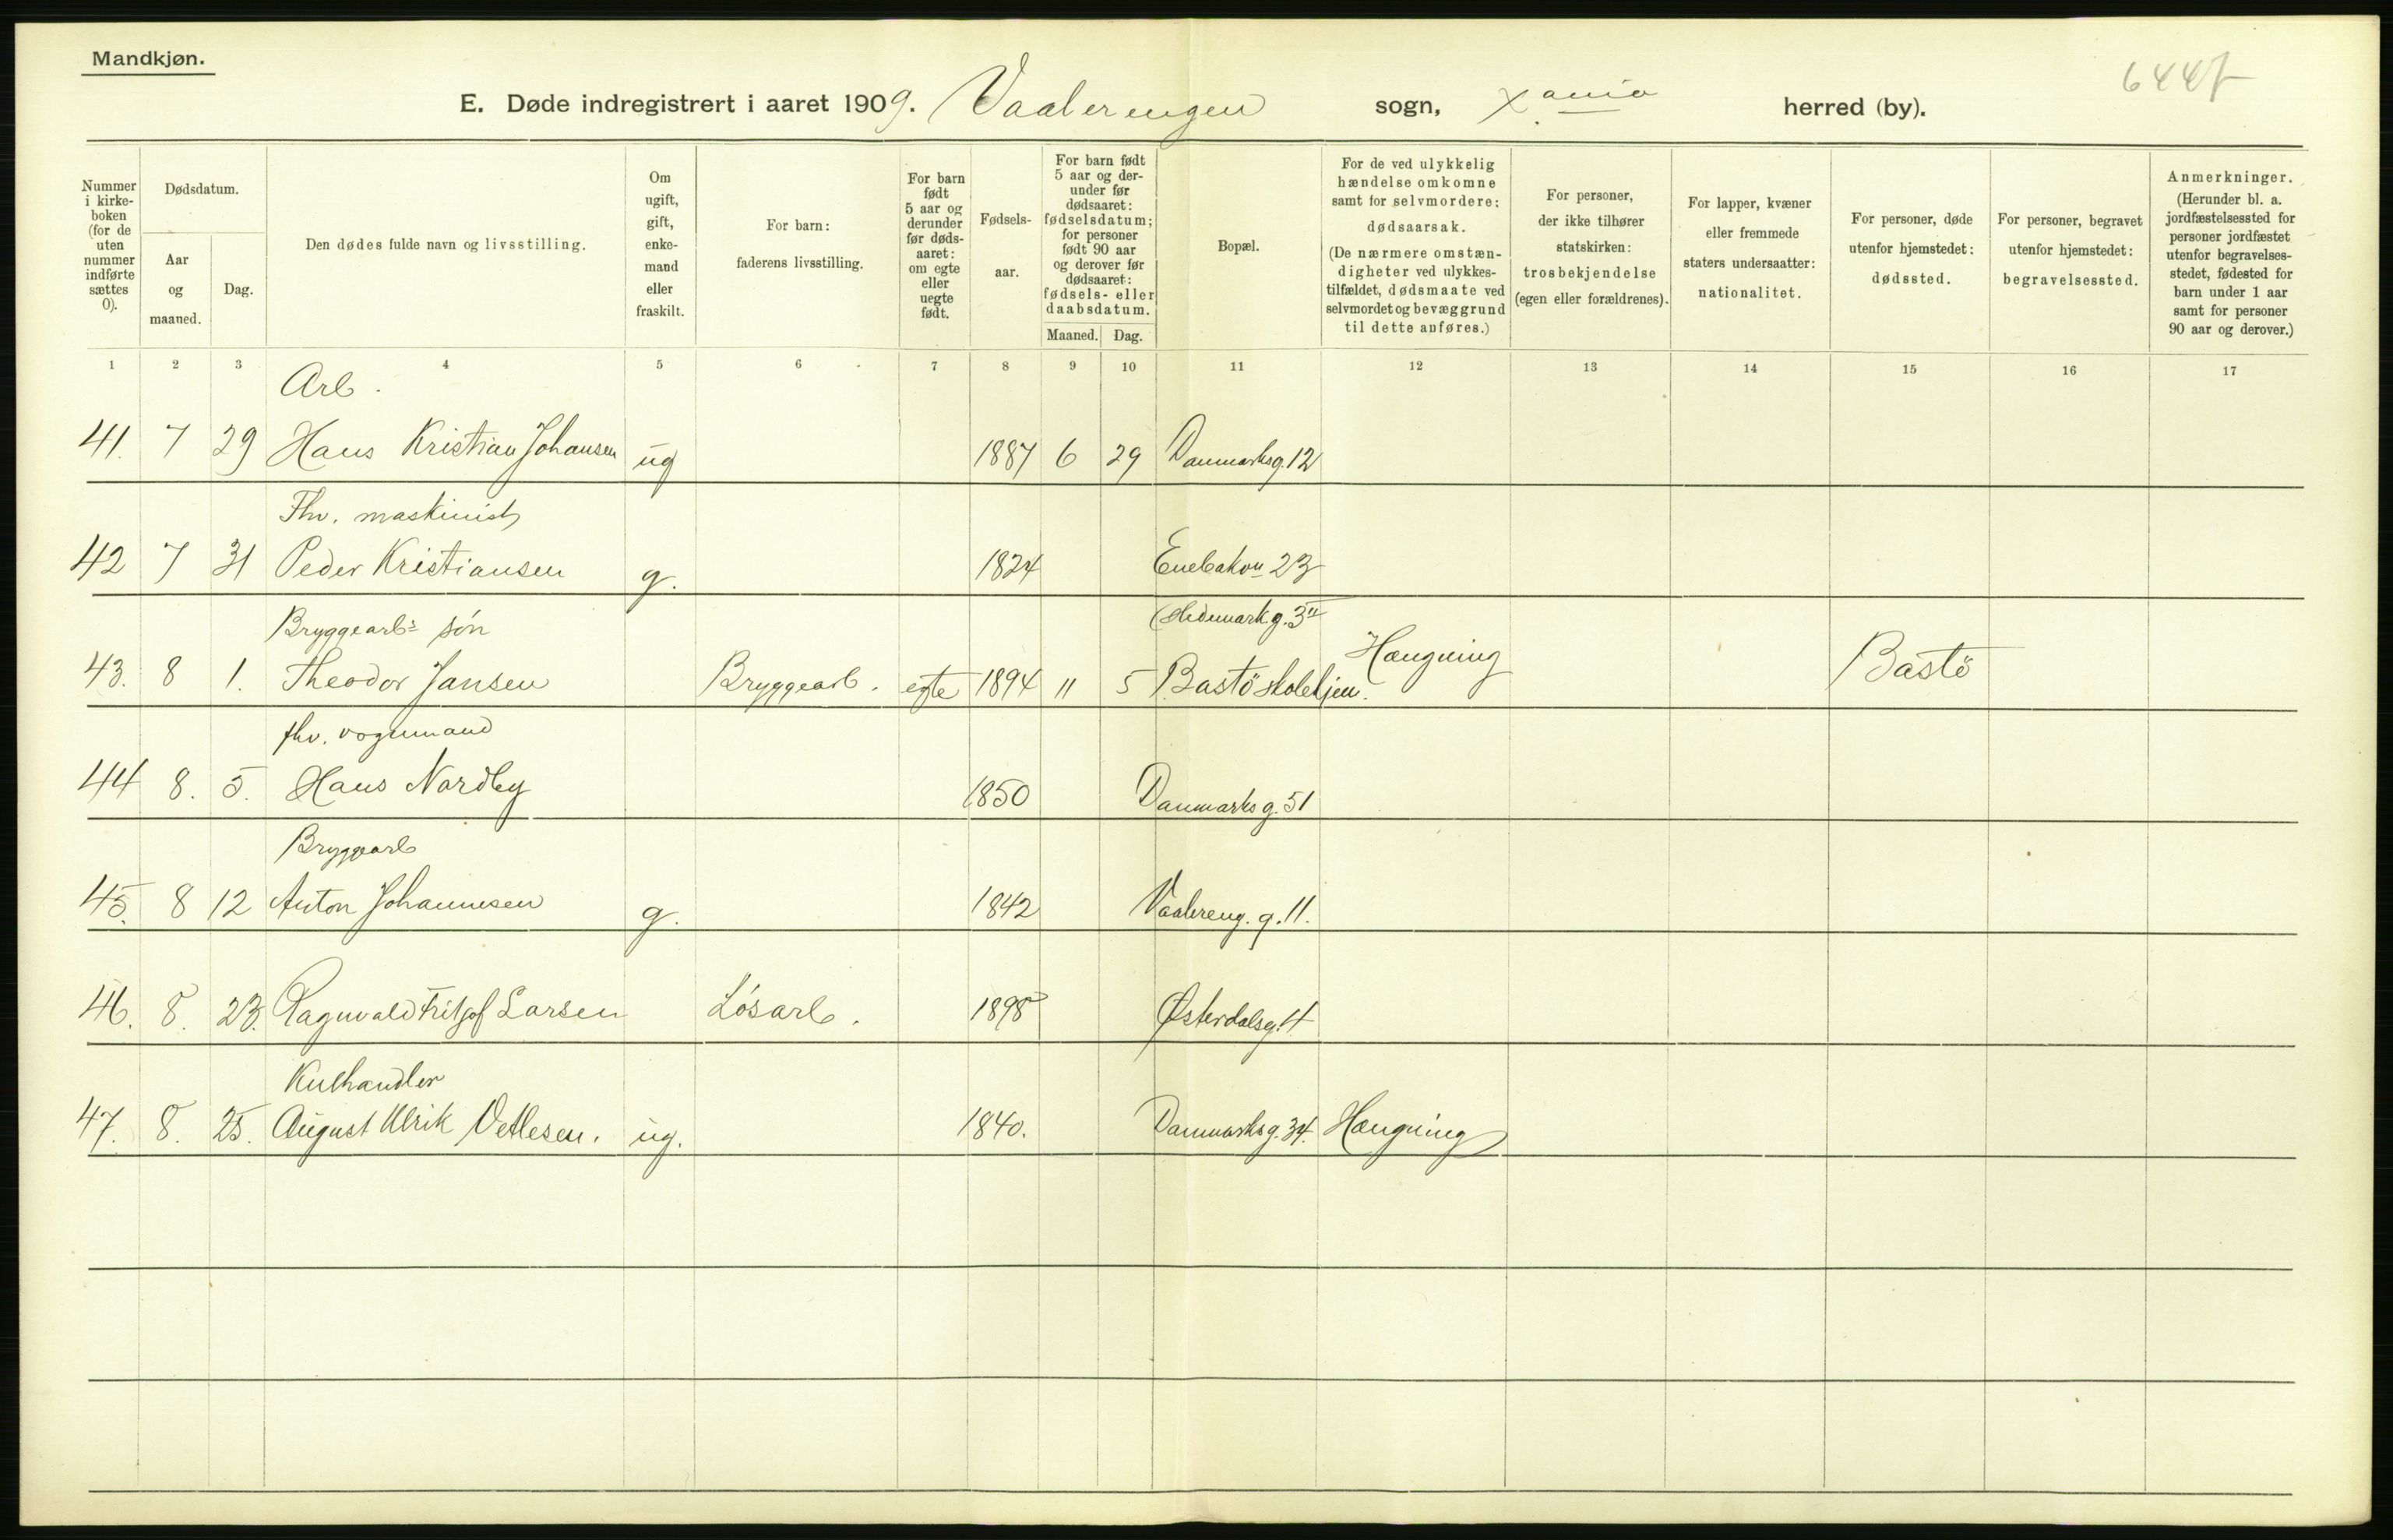 Mandkjøn.
E. Døde indregistrert i aaret 1909. Vaalerengen sogn, Xania herred (by).
Nummer i kirkeboken (for de uten nummer indførte sættes 0).
Dødsdatum.
Aar og maaned.
Dag.
Den dødes fulde navn og livsstilling.
Om ugift, gift, enkemand eller fraskilt.
For barn: faderens livsstilling.
For barn født 5 aar og derunder før dødsaaret: om egte eller uegte født.
Fødselsaar.
For barn født 5 aar og derunder før dødsaaret: fødselsdatum; for personer født 90 aar og derover før dødsaaret: fødsels- eller daabsdatum.
Maaned. Dag.
Bopæl.
For de ved ulykkelig hændelse omkomne samt for selvmordere: dødsaarsak. (De nærmere omstændigheter ved ulykkestilfældet, dødsmaate ved selvmordet og bevæggrund til dette anføres.)
For personer, der ikke tilhører statskirken: trosbekjendelse (egen eller forældrenes).
For lapper, kvæner eller fremmede staters undersaatter: nationalitet.
For personer, døde utenfor hjemstedet: dødssted.
For personer, begravet utenfor hjemstedet: begravelsessted.
Anmerkninger. (Herunder bl. a. jordfæstelsessted for personer jordfæstet utenfor begravelsesstedet, fødested for barn under 1 aar samt for personer 90 aar og derover.)
1 2 3 4 5 6 7 8 9 10 11 12 13 14 15 16 17
Arb.
41. 7 29 Hans Kristian Johansen ug 1887 6 29 Danmarksg. 12
Fhv. maskinist
42 7 31 Peder Kristiansen g. 1824 Enebakvn 23
Bryggearbs søn (Hedemarkg. 3II
43. 8 1. Theodor Jansen Bryggearb. egte 1894 11 5 Bastö skolehjem. Hængning Bastö
fhv. vognmand
44 8. 5. Hans Nordby 1850 Danmarksg. 51
Bryggearb
45. 8 12 Anton Johannesen g. 1842 Vaalereng. g. 11.
46. 8. 23. Ragnvald Fritjof Larsen Løsarb. 1898 Østerdalsg. 4
Kulhandler
47. 8. 25. August Ulrik Vetlesen. ug. 1840. Danmarksg. 34. Hængning